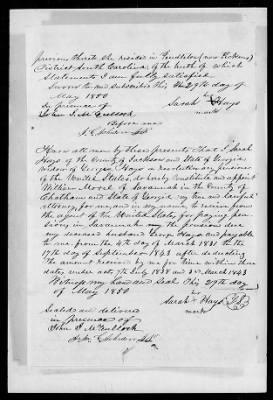 previous thereto she resided in Pendleton (now Pickens)
District South Carolina, of the truth of which
Statements I am fully satisfied
Sworn to and subscribed this the 29th day of
May 1850
In presence of Sarah Hays
John J. McCullock mark
Before me
Know all men by these presents That I Sarah
Hays of the County of Jackson and State of Georgia
widow of George Hays a revolutionary pensioner
of the United States, do hereby Constitute and appoint
William Morel of Savannah in the County of
Chatham and State of Georgia, my true and lawful
attorney for me, and in my name to receive from
the agent of the United States, for paying pen
sions, in Savannah my the pension due
my deceased husband George Hays and payable
to me from the 4th day of March 1831 to the
17th day of September 1843 after deducting
the amount received by me for time within these
dates, under acts 7th July 1838 and 3rd March 1843
Witness my hand and seal this 29th day
of May 1850
her
Sarah Hays L.S.
mark
Sealed and delivered
in presence of
John J. McCullock